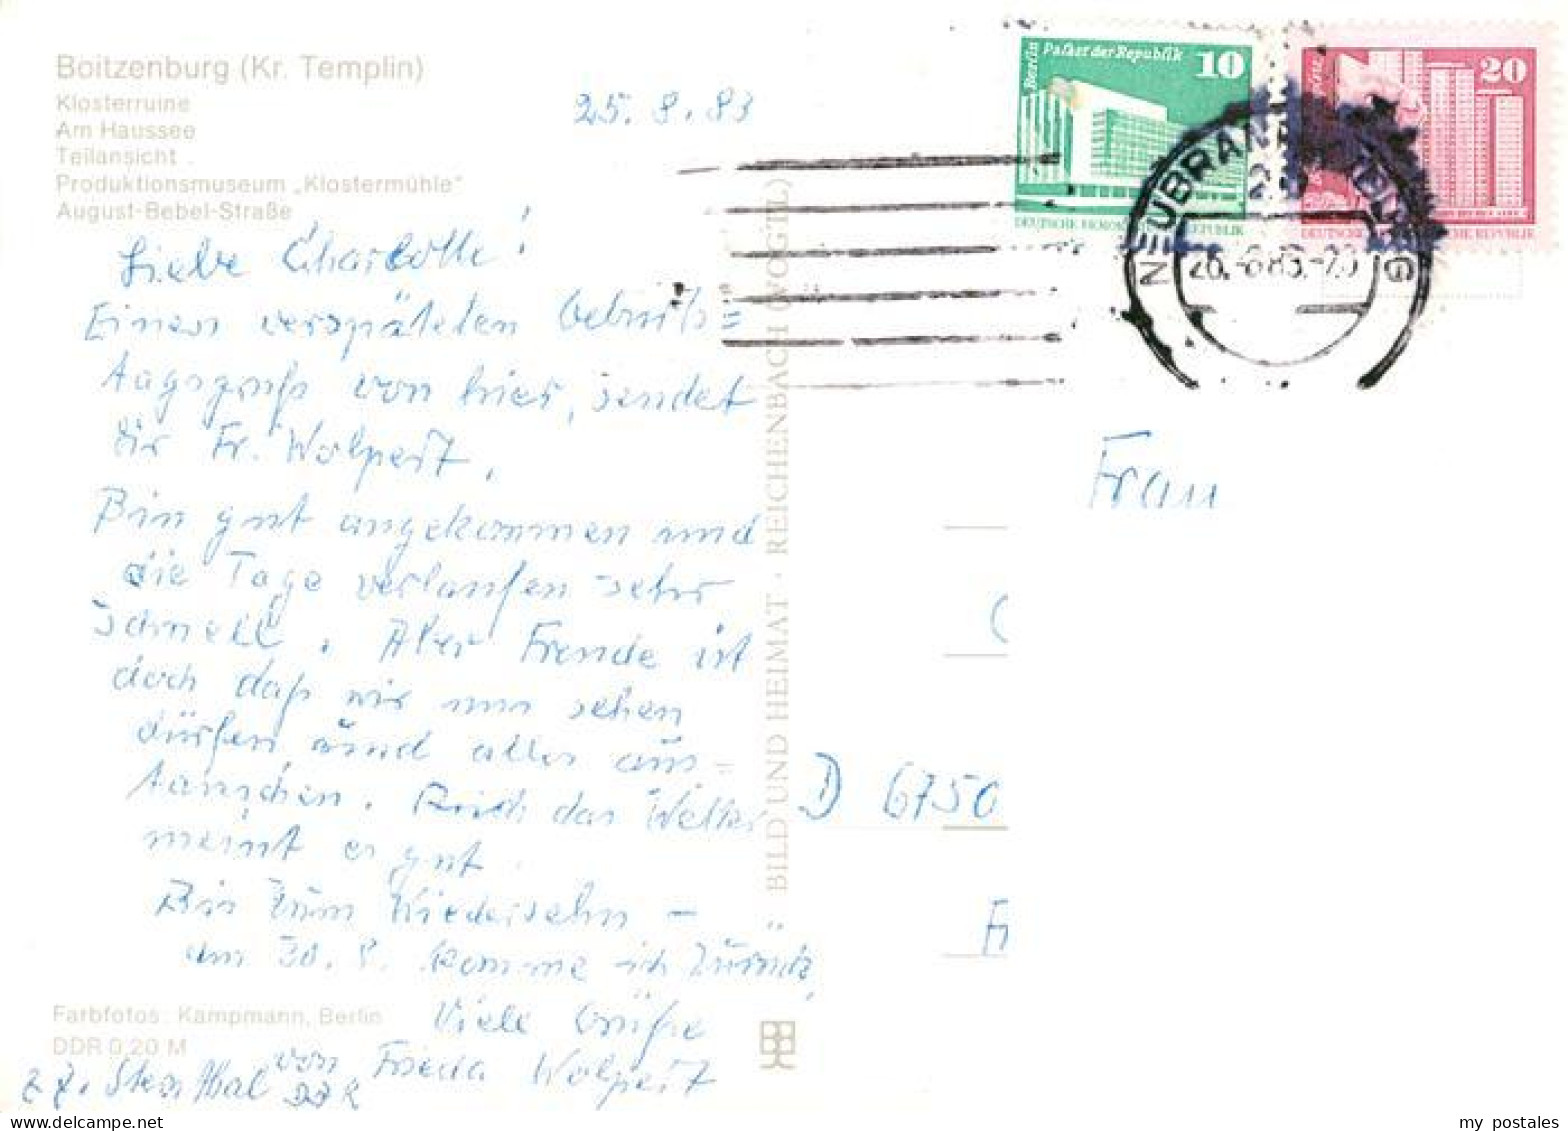 Boitzenburg (Kr. Templin)
Klosterruine
Am Haussee
Teilansicht
Produktionsmuseum „Klostermühle"
August-Bebel-Straße
25. 8. 83
Liebe Charlotte!
Einen verspäteten Geburts=
tagsgruß von hier, sendet
dir Fr. Wolpert.
Bin gut angekommen und
die Tage verlaufen sehr
schnell. Aber Freude ist
doch daß wir uns sehen
dürfen und alles aus=
tauschen. Auch das Wetter
meint es gut.
Bis zum Wiedersehn –
am 30. 8. komme ich zurück,
Viele Grüße
von Frieda Wolpert
z. Z. DDR
Farbfotos: Kampmann, Berlin
DDR 0,20 M
BILD UND HEIMAT · REICHENBACH (VOGTL)
Berlin Palast der Republik 10
20
REPUBLIK
DEUTSCHE REPUBLIK
NEUBRANDENBURG
Frau
D 6750
my postales